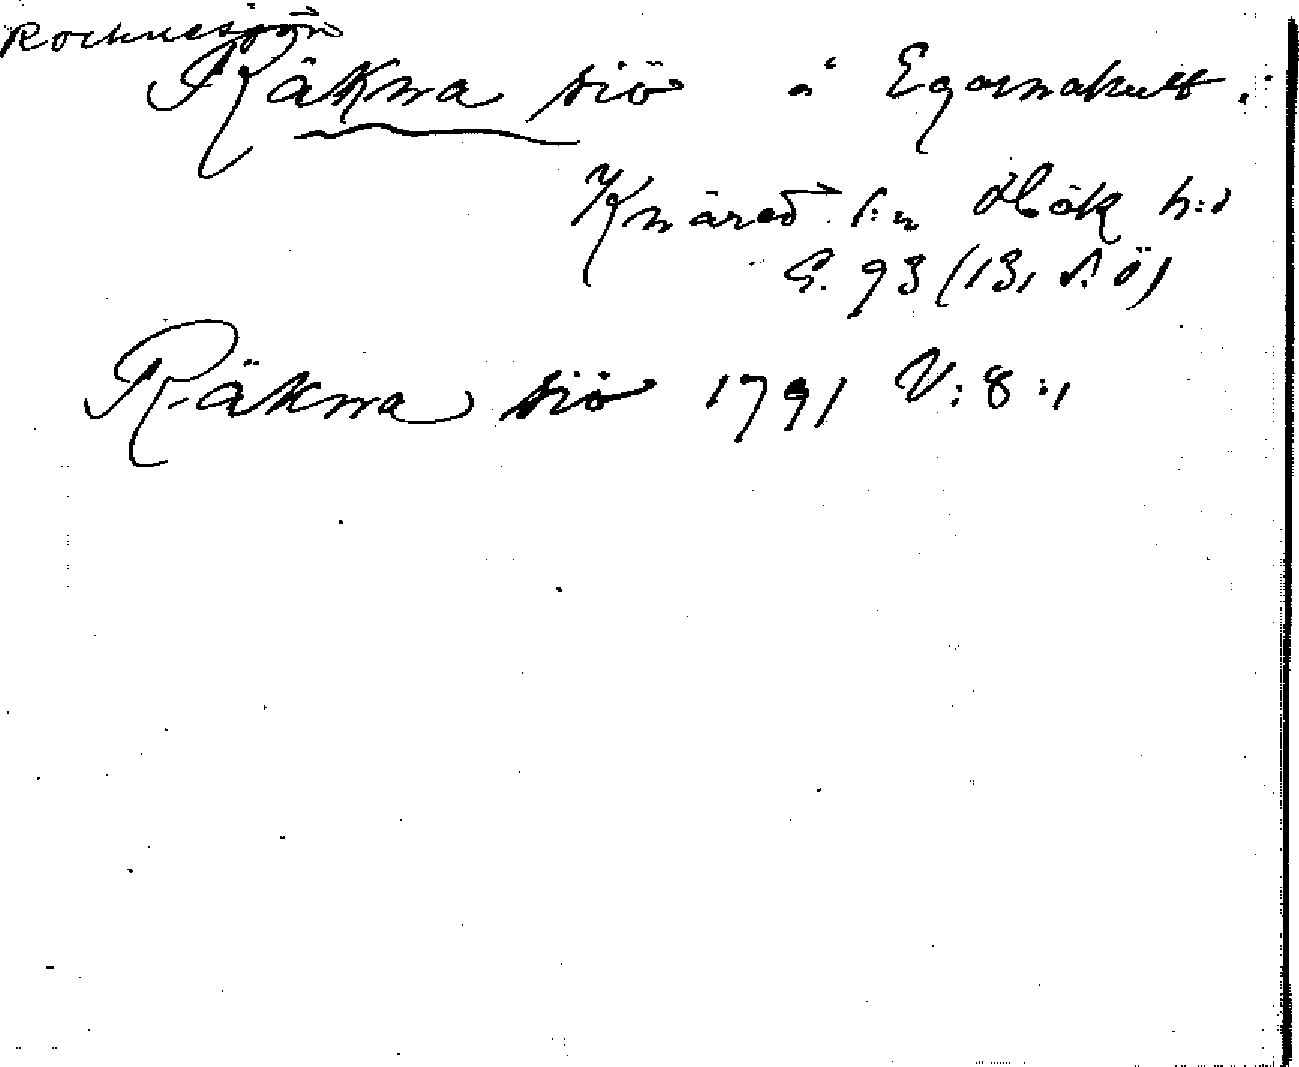 Rocknesjön
Räkna siö å Egornakult.
Knäred s:n Hök h:d
G. 93 (13, S. Ö)
Räkna siö 1791 V:8:1